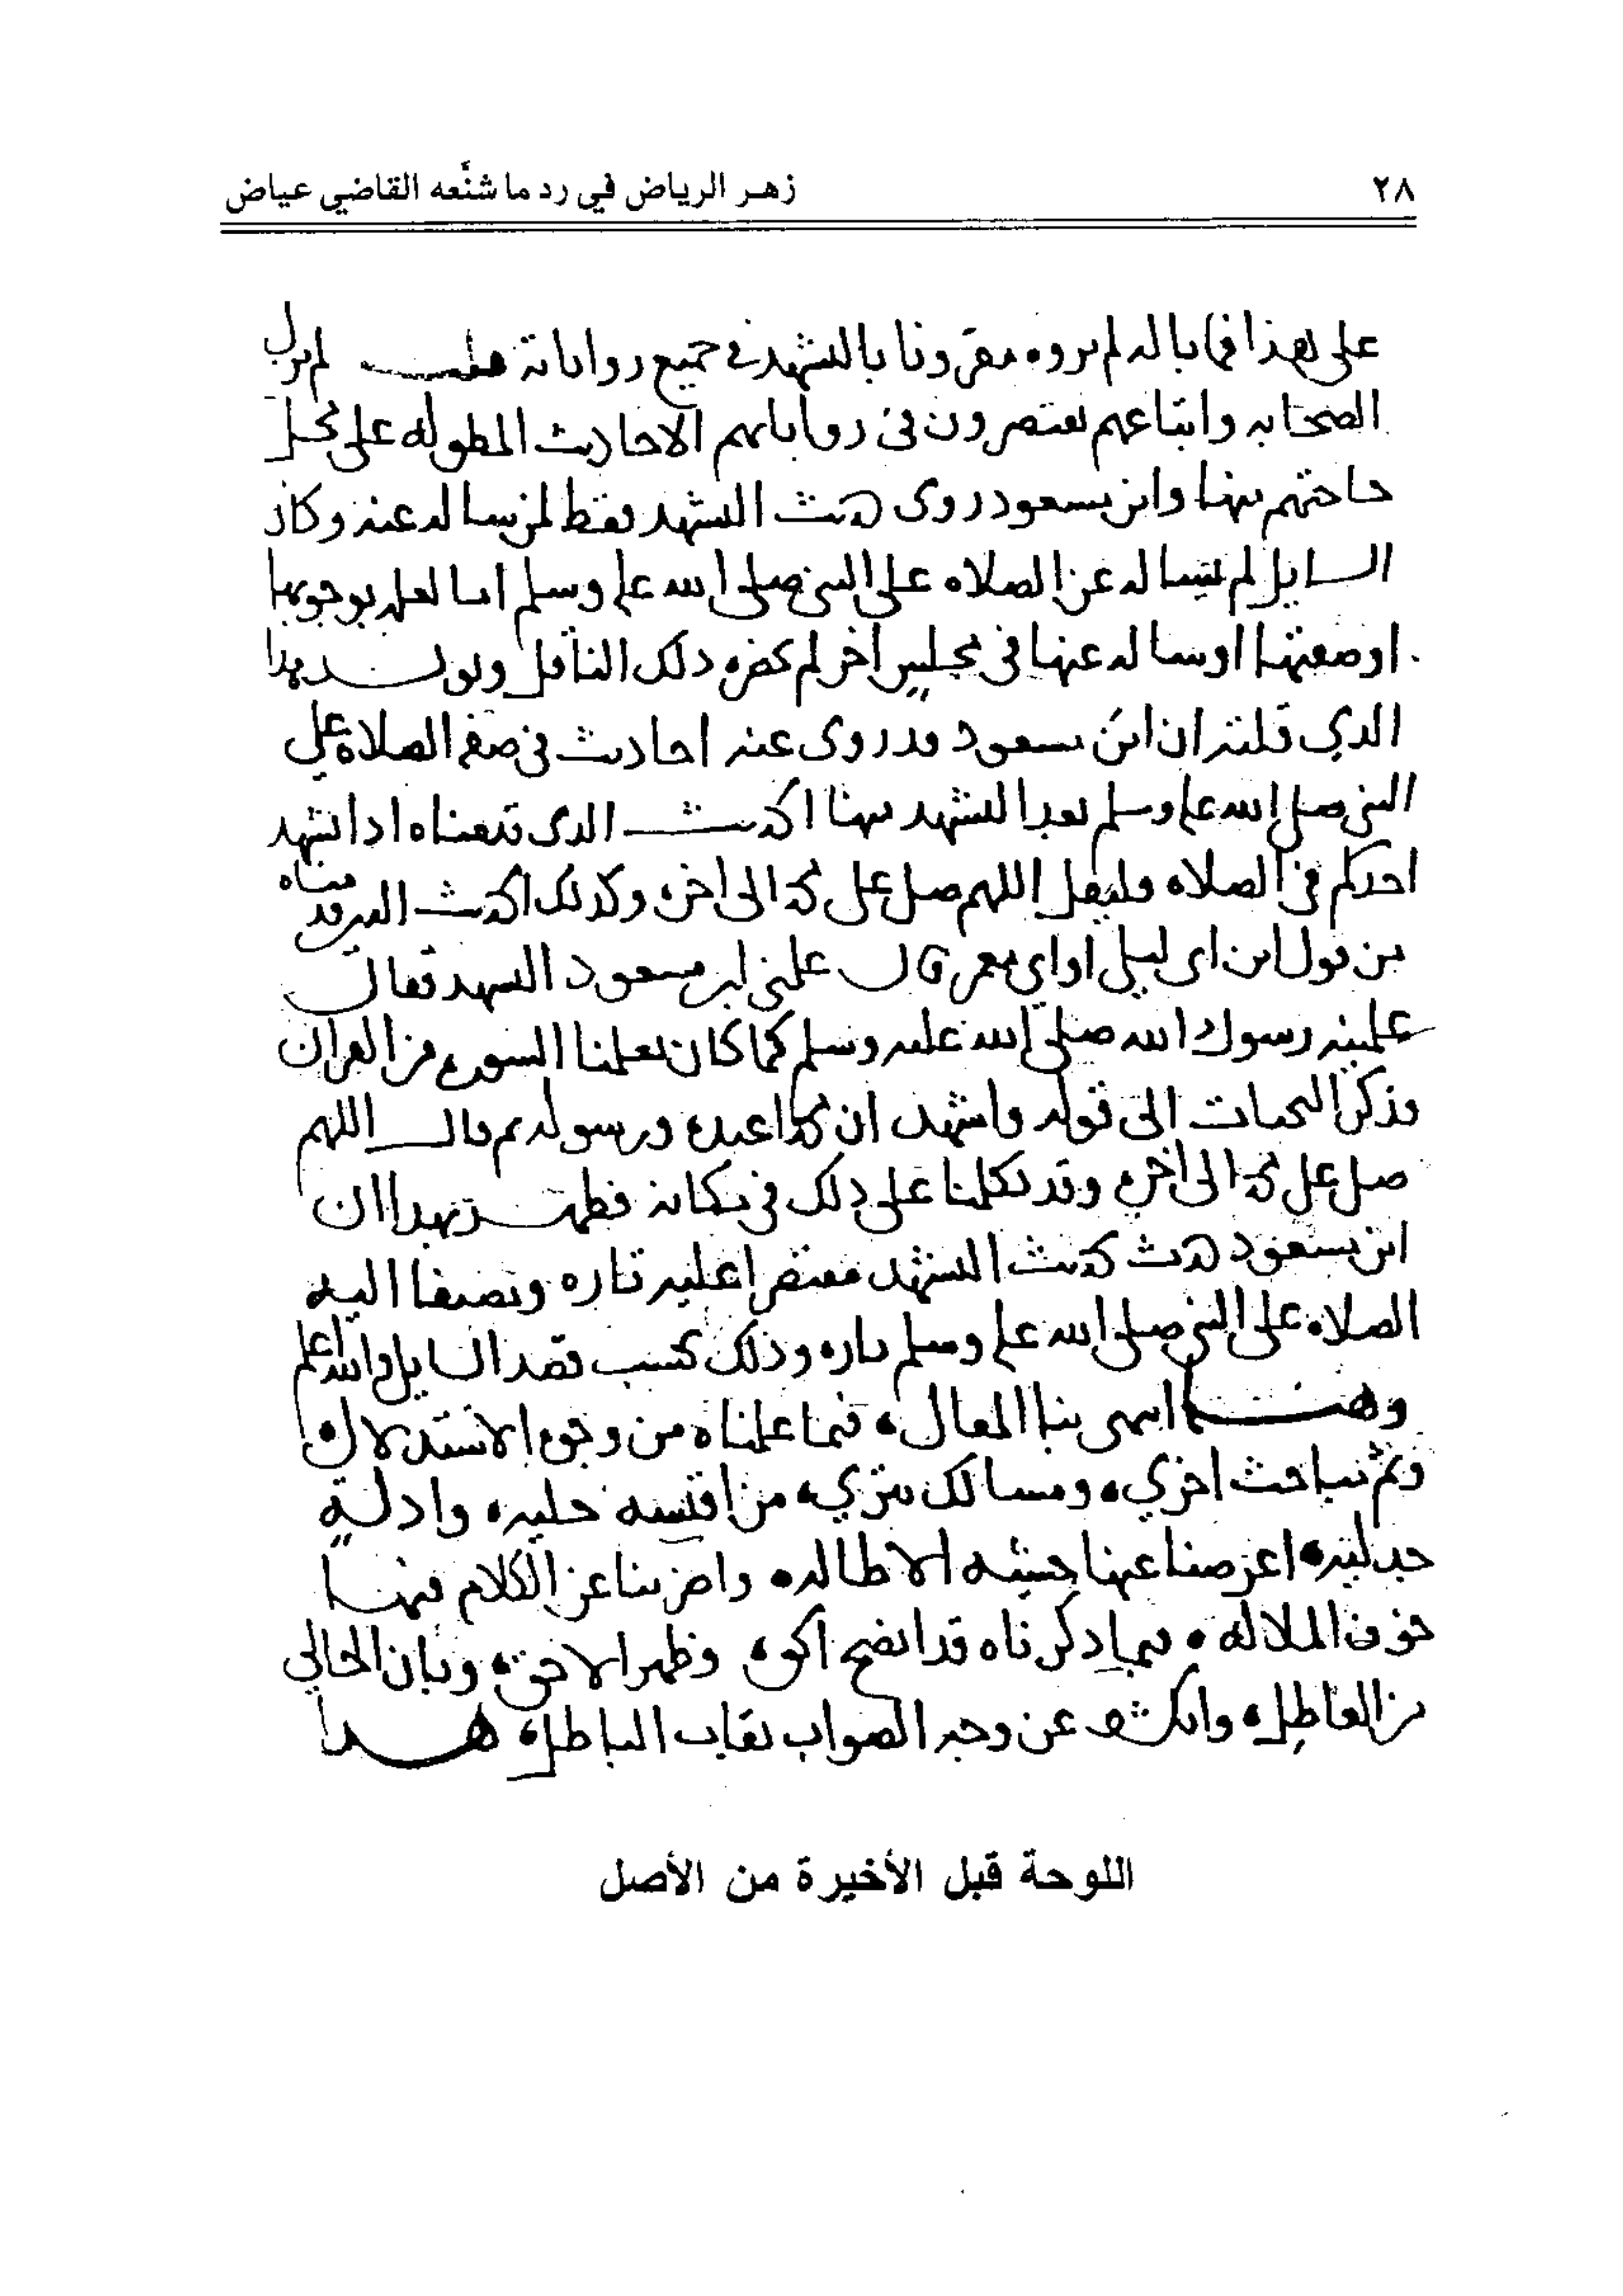 ٢٨
زهر الرياض في رد ما شنَّعه القاضي عياض
على هذا فما باله لم يروه مقرونا بالتشهد في جميع رواياته قلت لم يزل
الصحابه واتباعهم يقتصرون في رواياتهم الاحاديث المطوله على محل
حاجتهم منها وابن مسعود روى حديث التشهد فقط لمن ساله عنه وكان
السايل لم يساله عن الصلاه على النبي صلى الله عليه وسلم اما لعلمه بوجوبها
او صفتها او ساله عنها في مجلس اخر لم يحضره ذلك الناقل ويويد هذا
الذي قلته ان ابن مسعود قد روى عنه احاديث في صفه الصلاة على
النبي صلى الله عليه وسلم بعد التشهد منها الحديث الذي قدمناه اذا تشهد
احدكم في الصلاه فليقل اللهم صل على محمد الى اخره وكذلك الحديث الذي قدمناه
من قول ابن ابي ليلى او ابي معمر قال علمني ابن مسعود التشهد فقال
علمنيه رسول الله صلى الله عليه وسلم كما كان يعلمنا السوره من القران
فذكر التحيات الى قوله واشهد ان محمدا عبده ورسوله ثم قال اللهم
صل على محمد الى اخره وقد تكلمنا على ذلك في مكانه فظهر بهذا ان
ابن مسعود حدث بحديث التشهد مقتصرا عليه تاره ومضيفا اليه
الصلاه على النبي صلى الله عليه وسلم تاره وذلك بحسب قصد السايل والله اعلم
وهنا انتهى بنا المقال، فيما علمناه من وجوه الاستدلال
وثم مباحث اخرى، ومسالك تترى، من اقيسه جليه، وادلة
جدليه، اعرضنا عنها خشيه الاطاله، واضربنا عن الكلام فيها
خوف الملاله، فبما ذكرناه قد اتضح الحق، وظهر الاحق، وبان الحالي
من العاطل، وانكشف عن وجه الصواب نقاب الباطل، هذا
اللوحة قبل الأخيرة من الأصل